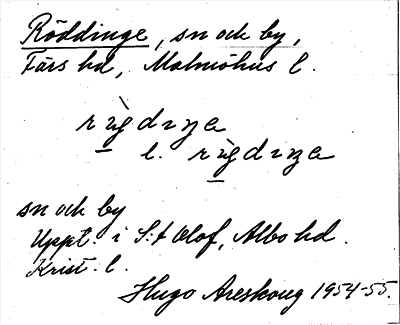 Röddinge, sn och by,
Färs hd, Malmöhus l.
l.
sn och by
Uppt. i S:t Olof, Albo hd.
Krist. l.
Hugo Areskoug 1954-55.